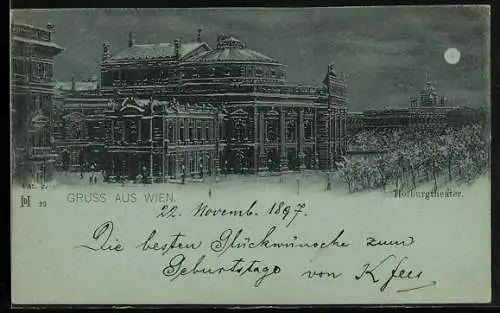 GRUSS AUS WIEN.
Hofburgtheater.
22. Novemb. 1897.
Die besten Glückwünsche zum
Geburtstage von K